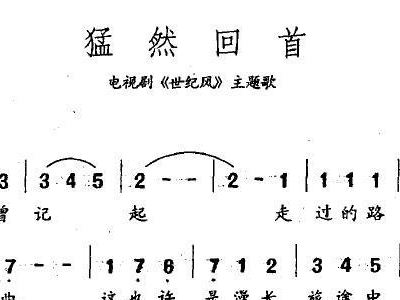 猛然回首
电视剧《世纪风》主题歌
3 | 3 4 5 | 2 - - | 2 - 1 | 1 1 1 |
曾 记 起 走 过 的 路
7 - - | 1 7 6 | 7 1 2 | 3 4 5
这 也 许 是 漫 长 旅 途 中